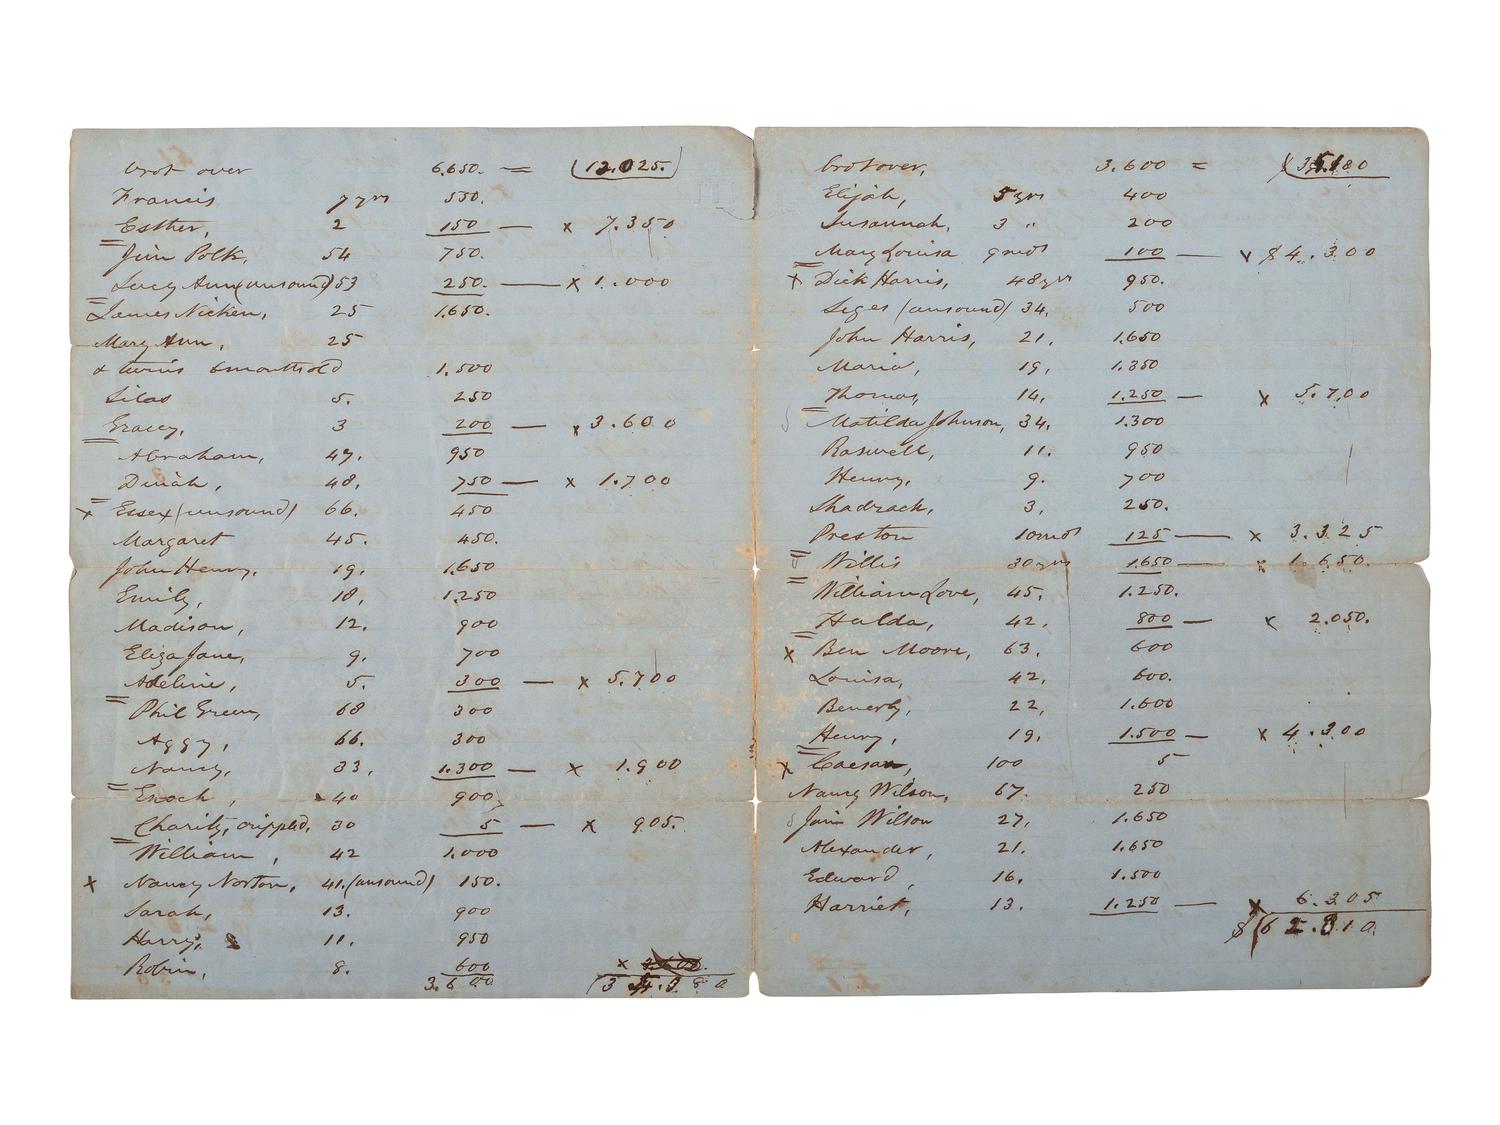 brot over 6.650. = (12.025.)
Francis 7 yrs 550.
Esther, 2 150 — x 7.350
Jim Polk, 54 750.
Lucy Ann (unsound) 53 250. — x 1.000
James Nicken, 25 1.650.
Mary Ann, 25
& twins 6 months old 1.500
Silas 5. 250
Gracey, 3 200 — x 3.600
Abraham, 47. 950
Dinah, 48, 750 — x 1.700
x Essex (unsound) 66. 450
Margaret 45. 450.
John Henry, 19, 1.650
Emily, 18, 1.250
Madison, 12. 900
Eliza Jane, 9. 700
Adeline, 5. 300 — x 5.700
Phil Green, 68 300
Aggy, 66. 300
Nancy, 33, 1.300 — x 1.900
Enoch, 40 900
Charity, crippled, 30 5 — x 905.
William, 42 1.000
x Nancy Norton, 41. (unsound) 150.
Sarah, 13. 900
Harry, 11. 950
Robin, 8. 600 x
3.600
brot over, 3.600 =
Elijah, 5 yrs 400
Susannah, 3 " 200
Mary Louisa 9 mos 100 — x $4.300
x Dick Harris, 48 yrs 950.
(unsound) 34, 500
John Harris, 21, 1.650
Maria, 19, 1.350
Thomas, 14, 1.250 — x 5.700
Matilda Johnson, 34, 1.300
Roswell, 11. 950
Henry, 9. 700
Shadrack, 3, 250.
Preston 10 mos 125 — x 3.325
Willis 30 yrs 1.650 — x 1.650.
William Love, 45. 1.250.
Hulda, 42, 800 — x 2.050.
x Ben Moore, 63. 600
Louisa, 42, 600.
Beverly, 22, 1.600
Henry, 19, 1.500 — x 4.300
x Caesar, 100 5
Nancy Wilson, 67. 250
Jim Wilson 27, 1.650
Alexander, 21. 1.650
Edward, 16, 1.500
Harriet, 13. 1.250 — x 6.305